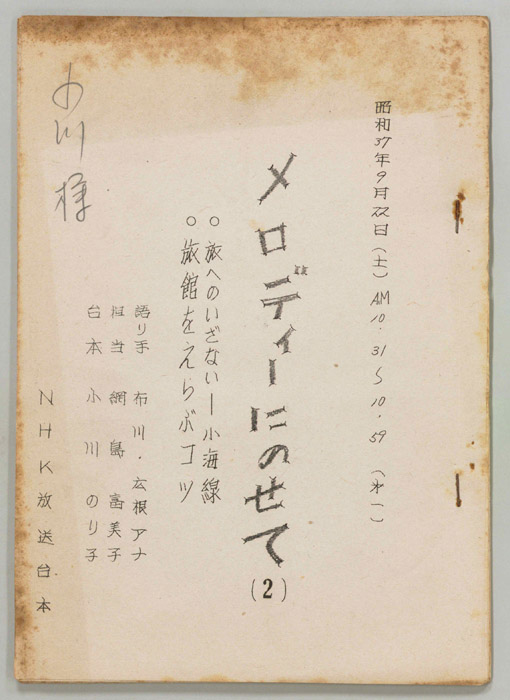 昭和37年9月22日(土)AM10.31~10.59(才一)
メロディーにのせて
(2)
○旅へのいざない―小海線
○旅館をえらぶコツ
語り手 布川・広根アナ
担当 網島富美子
台本 小川のり子
NHK放送台本
小川様